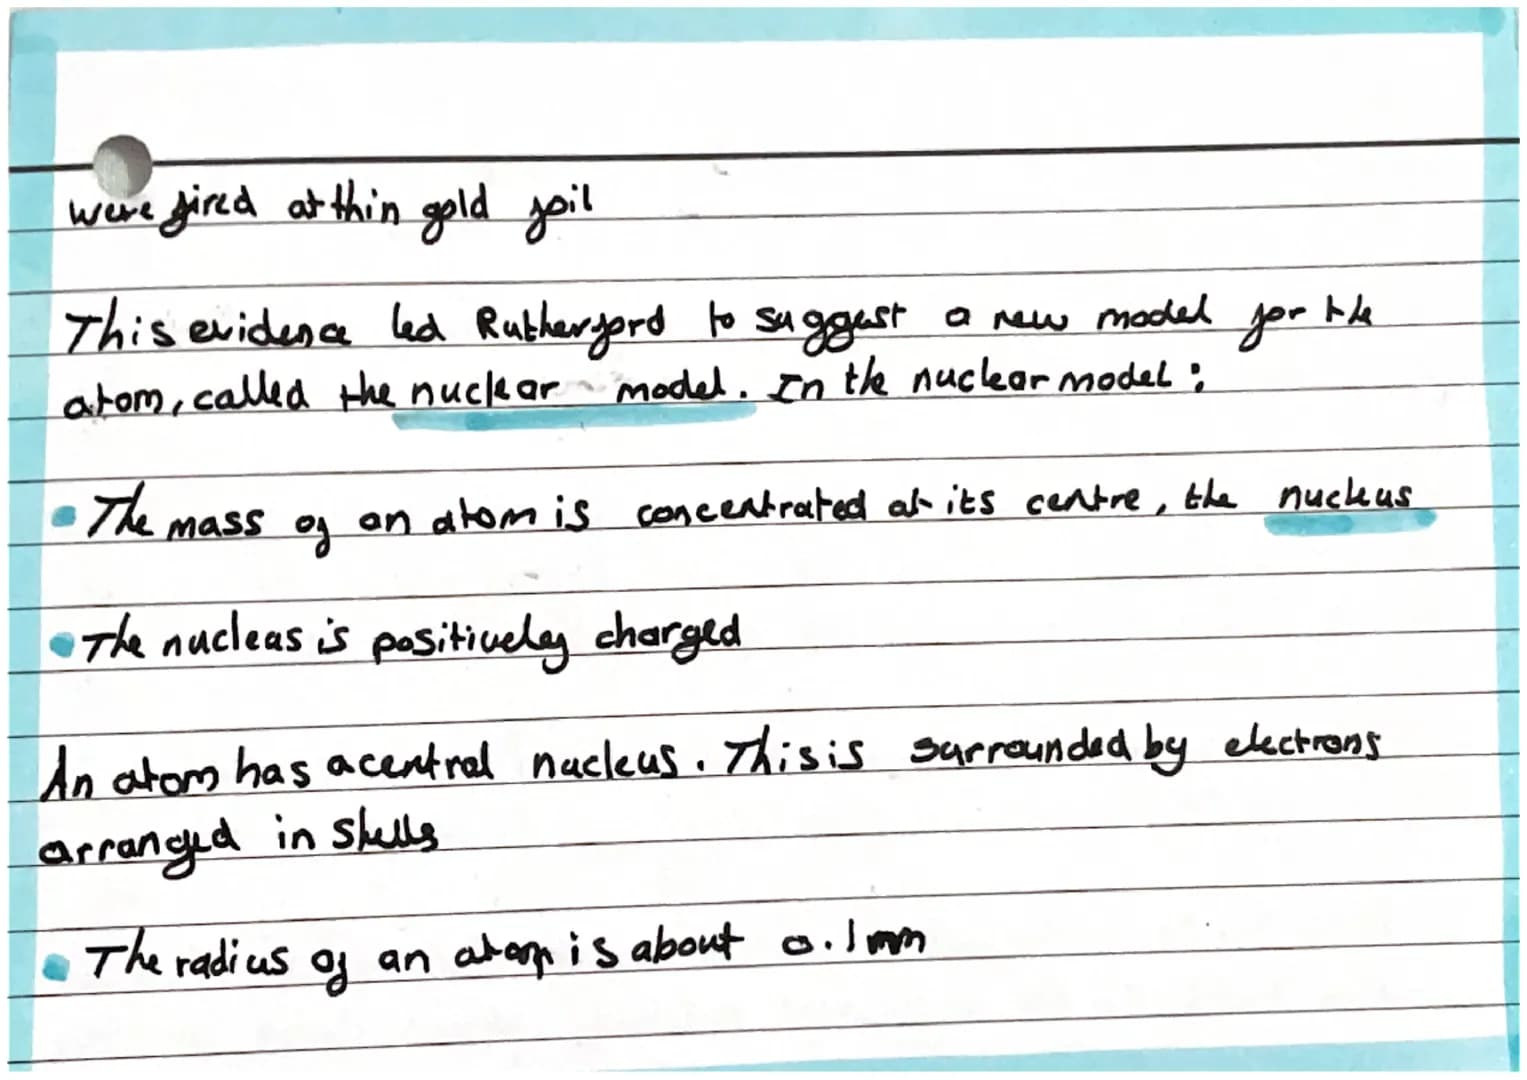 were fired at thin gold foil
This evidence led Rutherford to suggest a new model for the
atom, called the nuclear model. In the nuclear model:
• The mass of an atom is concentrated at its centre, the nucleus
• The nucleus is positively charged
An atom has a central nucleus. This is surrounded by electrons
arranged in shells
• The radius of an atom is about 0.1mm